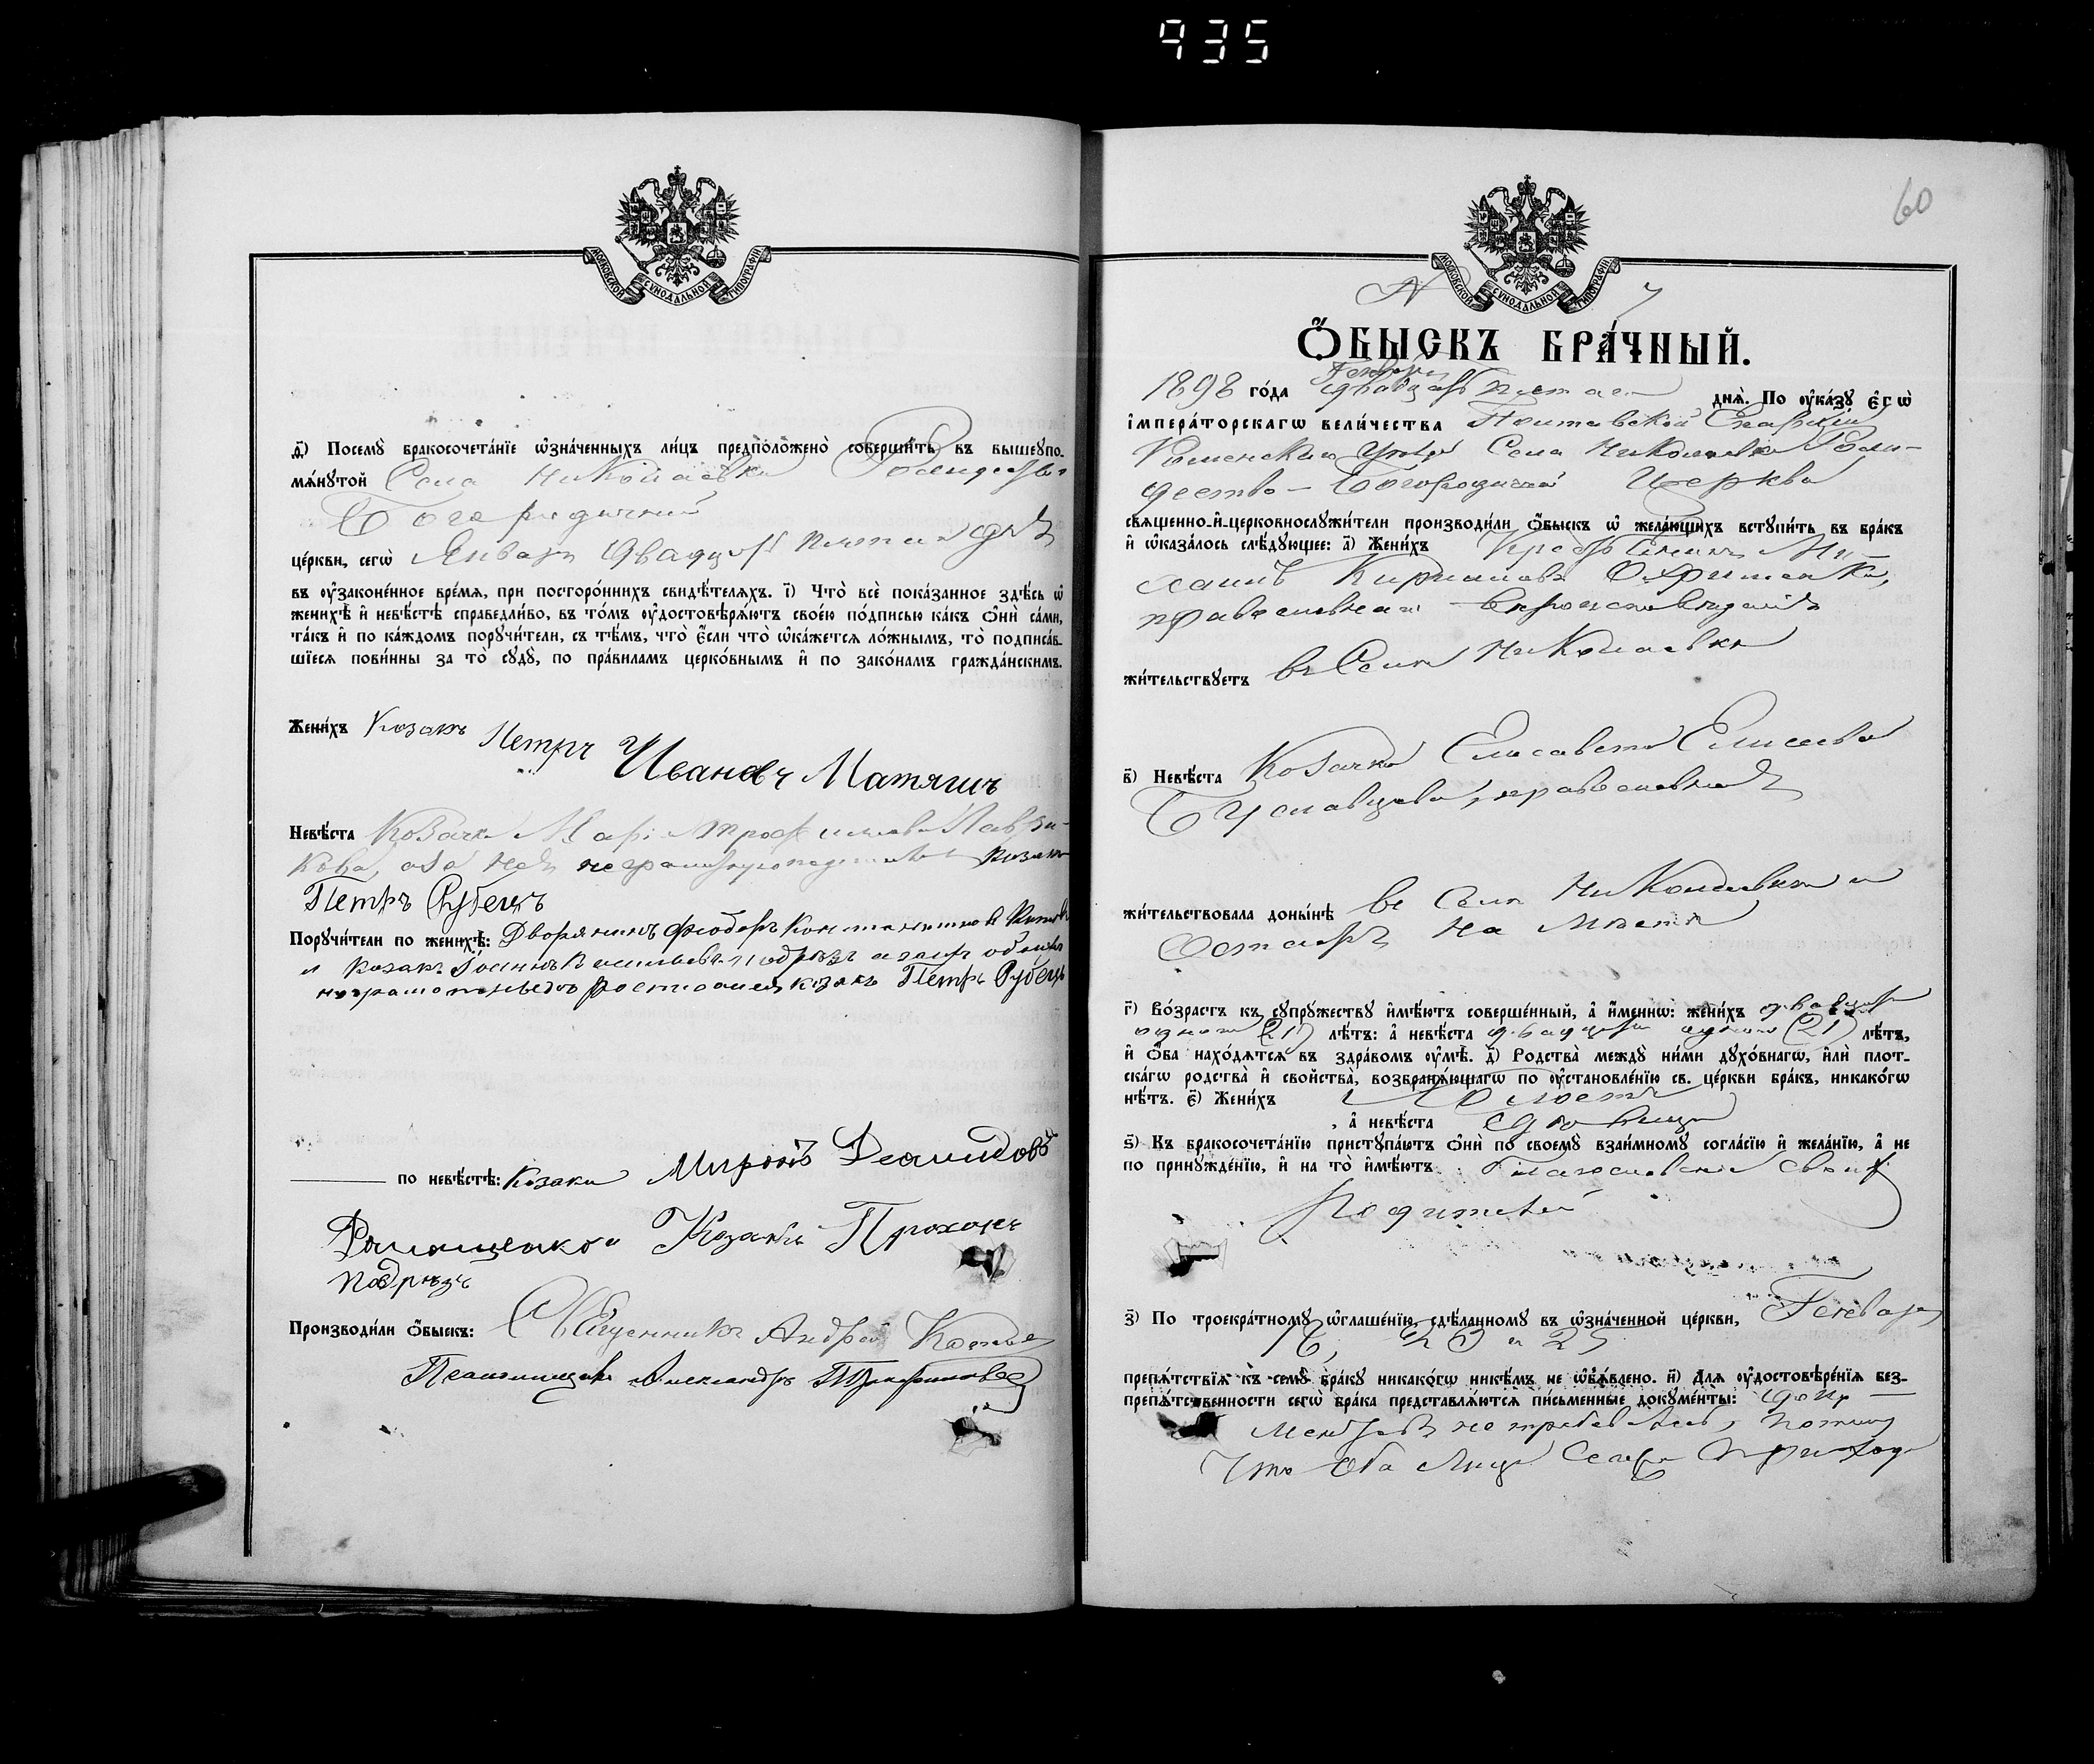 935
МОСКОВСКОЙ СУНОДАЛЬНОЙ ТИПОГРАФІИ
д҃) Посемꙋ̀ бракосочета́нїе ѡ҆зна́ченныхъ ли́цъ предполо́жено соверши́ть въ вышеꙋпо-
мѧ́нꙋтой Села Николаевки Рождество
Богородичной
це́ркви, сегѡ̀ Января двадцать пятаго дня
въ ᲂу҆зако́ненное вре́мѧ, при посторо́ннихъ свидѣ́телѧхъ. і҃) Что̀ всѐ пока́занное здѣ́сь ѡ҆
женихѣ̀ и҆ невѣ́стѣ справедли́во, въ то́мъ ᲂу҆достовѣрѧ́ютъ свое́ю по́дписью ка́къ ѻ҆нѝ са́ми,
та́къ и҆ по ка́ждомъ порꙋчи́тели, съ тѣ́мъ, что̀ є҆́сли что̀ ѡ҆ка́жетсѧ ло́жнымъ, то̀ подписа́в-
шїесѧ пови́нны за то̀ сꙋдꙋ̀, по пра́виламъ церко́внымъ и҆ по зако́намъ гражда́нскимъ.
Жени́хъ Козакъ Петръ Ивановъ Матяшъ
Невѣ́ста Козачка Трофимова
неграмотную козакъ
Петръ Рубецъ
Порꙋчи́тели по женихѣ̀: Дворянинъ Феодоръ Константиновъ
и козакъ Васильевъ Подрѣзъ а за
неграмотныхъ росписался козакъ Петръ Рубецъ
по невѣ́стѣ: Козаки Миронъ Демидовъ
Козакъ Прохоръ
Подрѣзъ
Производи́ли ѻ҆́быскъ: Священникъ Андрей
Псаломщикъ Александръ
60
МОСКОВСКОЙ СУНОДАЛЬНОЙ ТИПОГРАФІИ
N 7
Ѻ҆БЫСКЪ БРА́ЧНЫЙ.
Генваря
1898 го́да двадцать пятаго днѧ̀. По ᲂу҆ка́зꙋ є҆гѡ̀
і҆мпера́торскагѡ вели́чества Полтавской Епархіи
Роменскаго Уѣзда Села Николаевки Рож-
дество-Богородичной Церкви
свѧще́нно-и҆-церковнослꙋжи́тели производи́ли ѻ҆́быскъ ѡ҆ жела́ющихъ встꙋпи́ть въ бра́къ
и҆ ѡ҆каза́лось слѣ́дꙋющее: а҃) Жени́хъ
православнаго вѣроисповѣданія
жи́тельствꙋетъ въ Селѣ Николаевкѣ
в҃) Невѣ́ста Козачка Елисавета Елисеева
православная
жи́тельствовала доны́нѣ въ Селѣ Николаевкѣ и
на мѣстѣ
г҃) Во́зрастъ къ сꙋпрꙋ́жествꙋ и҆мѣ́ютъ соверше́нный, а҆ и҆́менно: жени́хъ двадцать
одного (21) лѣ́тъ: а҆ невѣ́ста двадцать одного (21) лѣ́тъ,
и҆ ѻ҆́ба нахо́дѧтсѧ въ здра́вомъ ᲂу҆мѣ̀. д҃) Родства̀ междꙋ̀ ни́ми дꙋхо́внагѡ, и҆лѝ плот-
ска́гѡ родства̀ и҆ сво́йства̀, возбранѧ́ющагѡ по ᲂу҆становле́нїю св. це́ркви бра́къ, никако́гѡ
нѣ́тъ. є҃) Жени́хъ холостъ
, а҆ невѣ́ста дѣвица
ѕ҃) Къ бракосочета́нїю пристꙋпа́ютъ ѻ҆нѝ по своемꙋ̀ взаи́мномꙋ согла́сїю и҆ жела́нїю, а҆ не
по принꙋжде́нїю, и҆ на то̀ и҆мѣ́ютъ Благословеніе своихъ
Родителей
з҃) По троекра́тномꙋ ѡ҆глаше́нїю, сдѣ́ланномꙋ въ ѡ҆зна́ченной це́ркви, Генваря
23 и 25
препѧ́тствїѧ къ семꙋ̀ бра́кꙋ никако́гѡ никѣ́мъ не ѡ҆б̾ѧ́влено. и҃) Длѧ ᲂу҆достовѣре́нїѧ без-
препѧ́тственности сегѡ̀ бра́ка представлѧ́ютсѧ пи́сьменные докꙋме́нты: доку-
ментовъ не требовалось, потому
что оба лица сего прихода